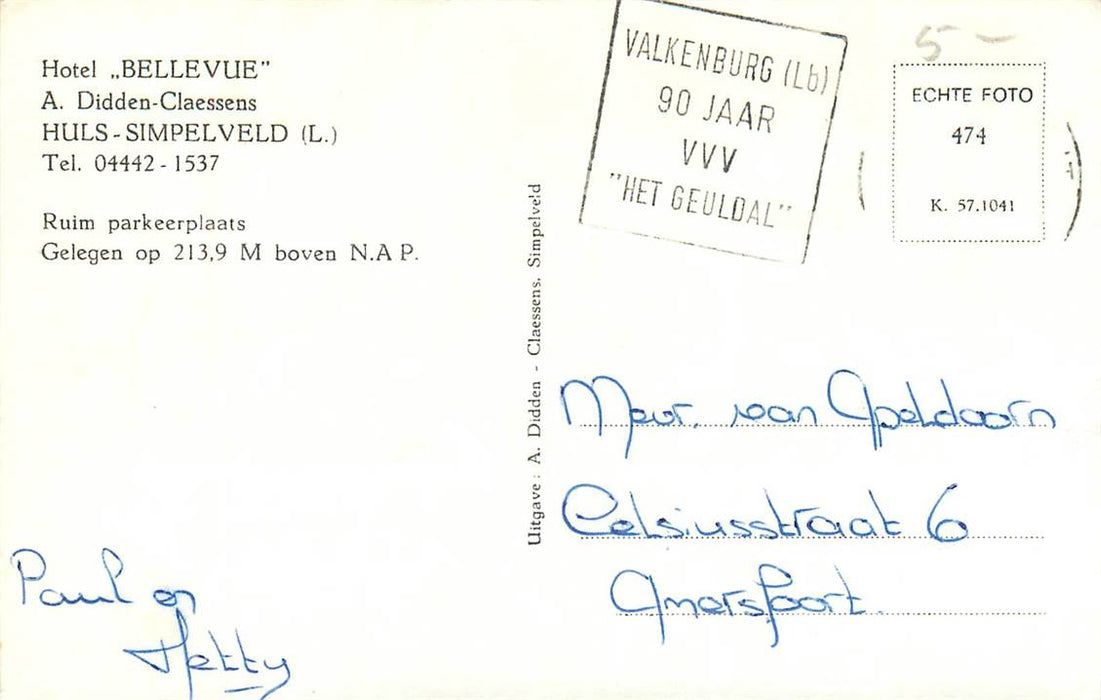 Hotel „BELLEVUE”
A. Didden-Claessens
HULS-SIMPELVELD (L.)
Tel. 04442-1537
Ruim parkeerplaats
Gelegen op 213,9 M boven N.A P.
Paul en
Hetty
Uitgave: A. Didden - Claessens. Simpelveld
VALKENBURG (Lb)
90 JAAR
VVV
"HET GEULDAL"
5-
ECHTE FOTO
474
K. 57.1041
Mevr. van Apeldoorn
Celsiusstraat 6
Amersfoort.